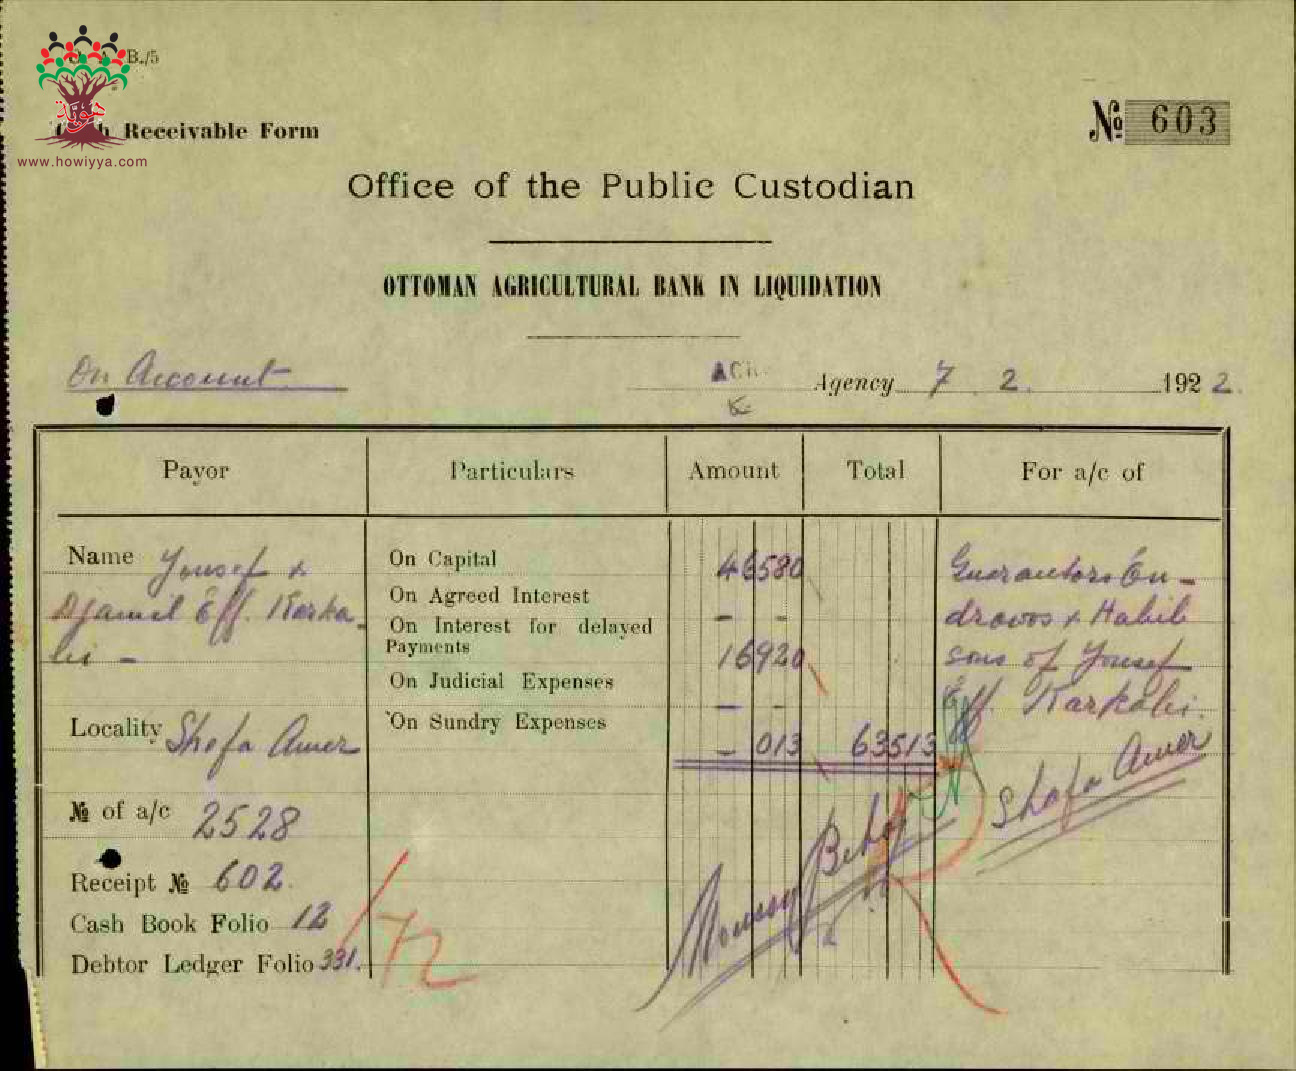 B./5
هوية
www.howiyya.com
Receivable Form
№ 603
Office of the Public Custodian
OTTOMAN AGRICULTURAL BANK IN LIQUIDATION
On Account
Agency 7 2. 1922.
Payor Particulars Amount Total For a/c of
Name Yousef &
Djamil Eff. Karka-
bi -
On Capital 46580
On Agreed Interest - -
On Interest for delayed
Payments 16920
On Judicial Expenses - -
On Sundry Expenses - 013 63513
Guarantors En-
drawos & Habib
sons of Yousef
Eff. Karkabi.
Shafa Amer
Locality Shefa Amer
№ of a/c 2528
Receipt № 602.
Cash Book Folio 12
Debtor Ledger Folio 331.